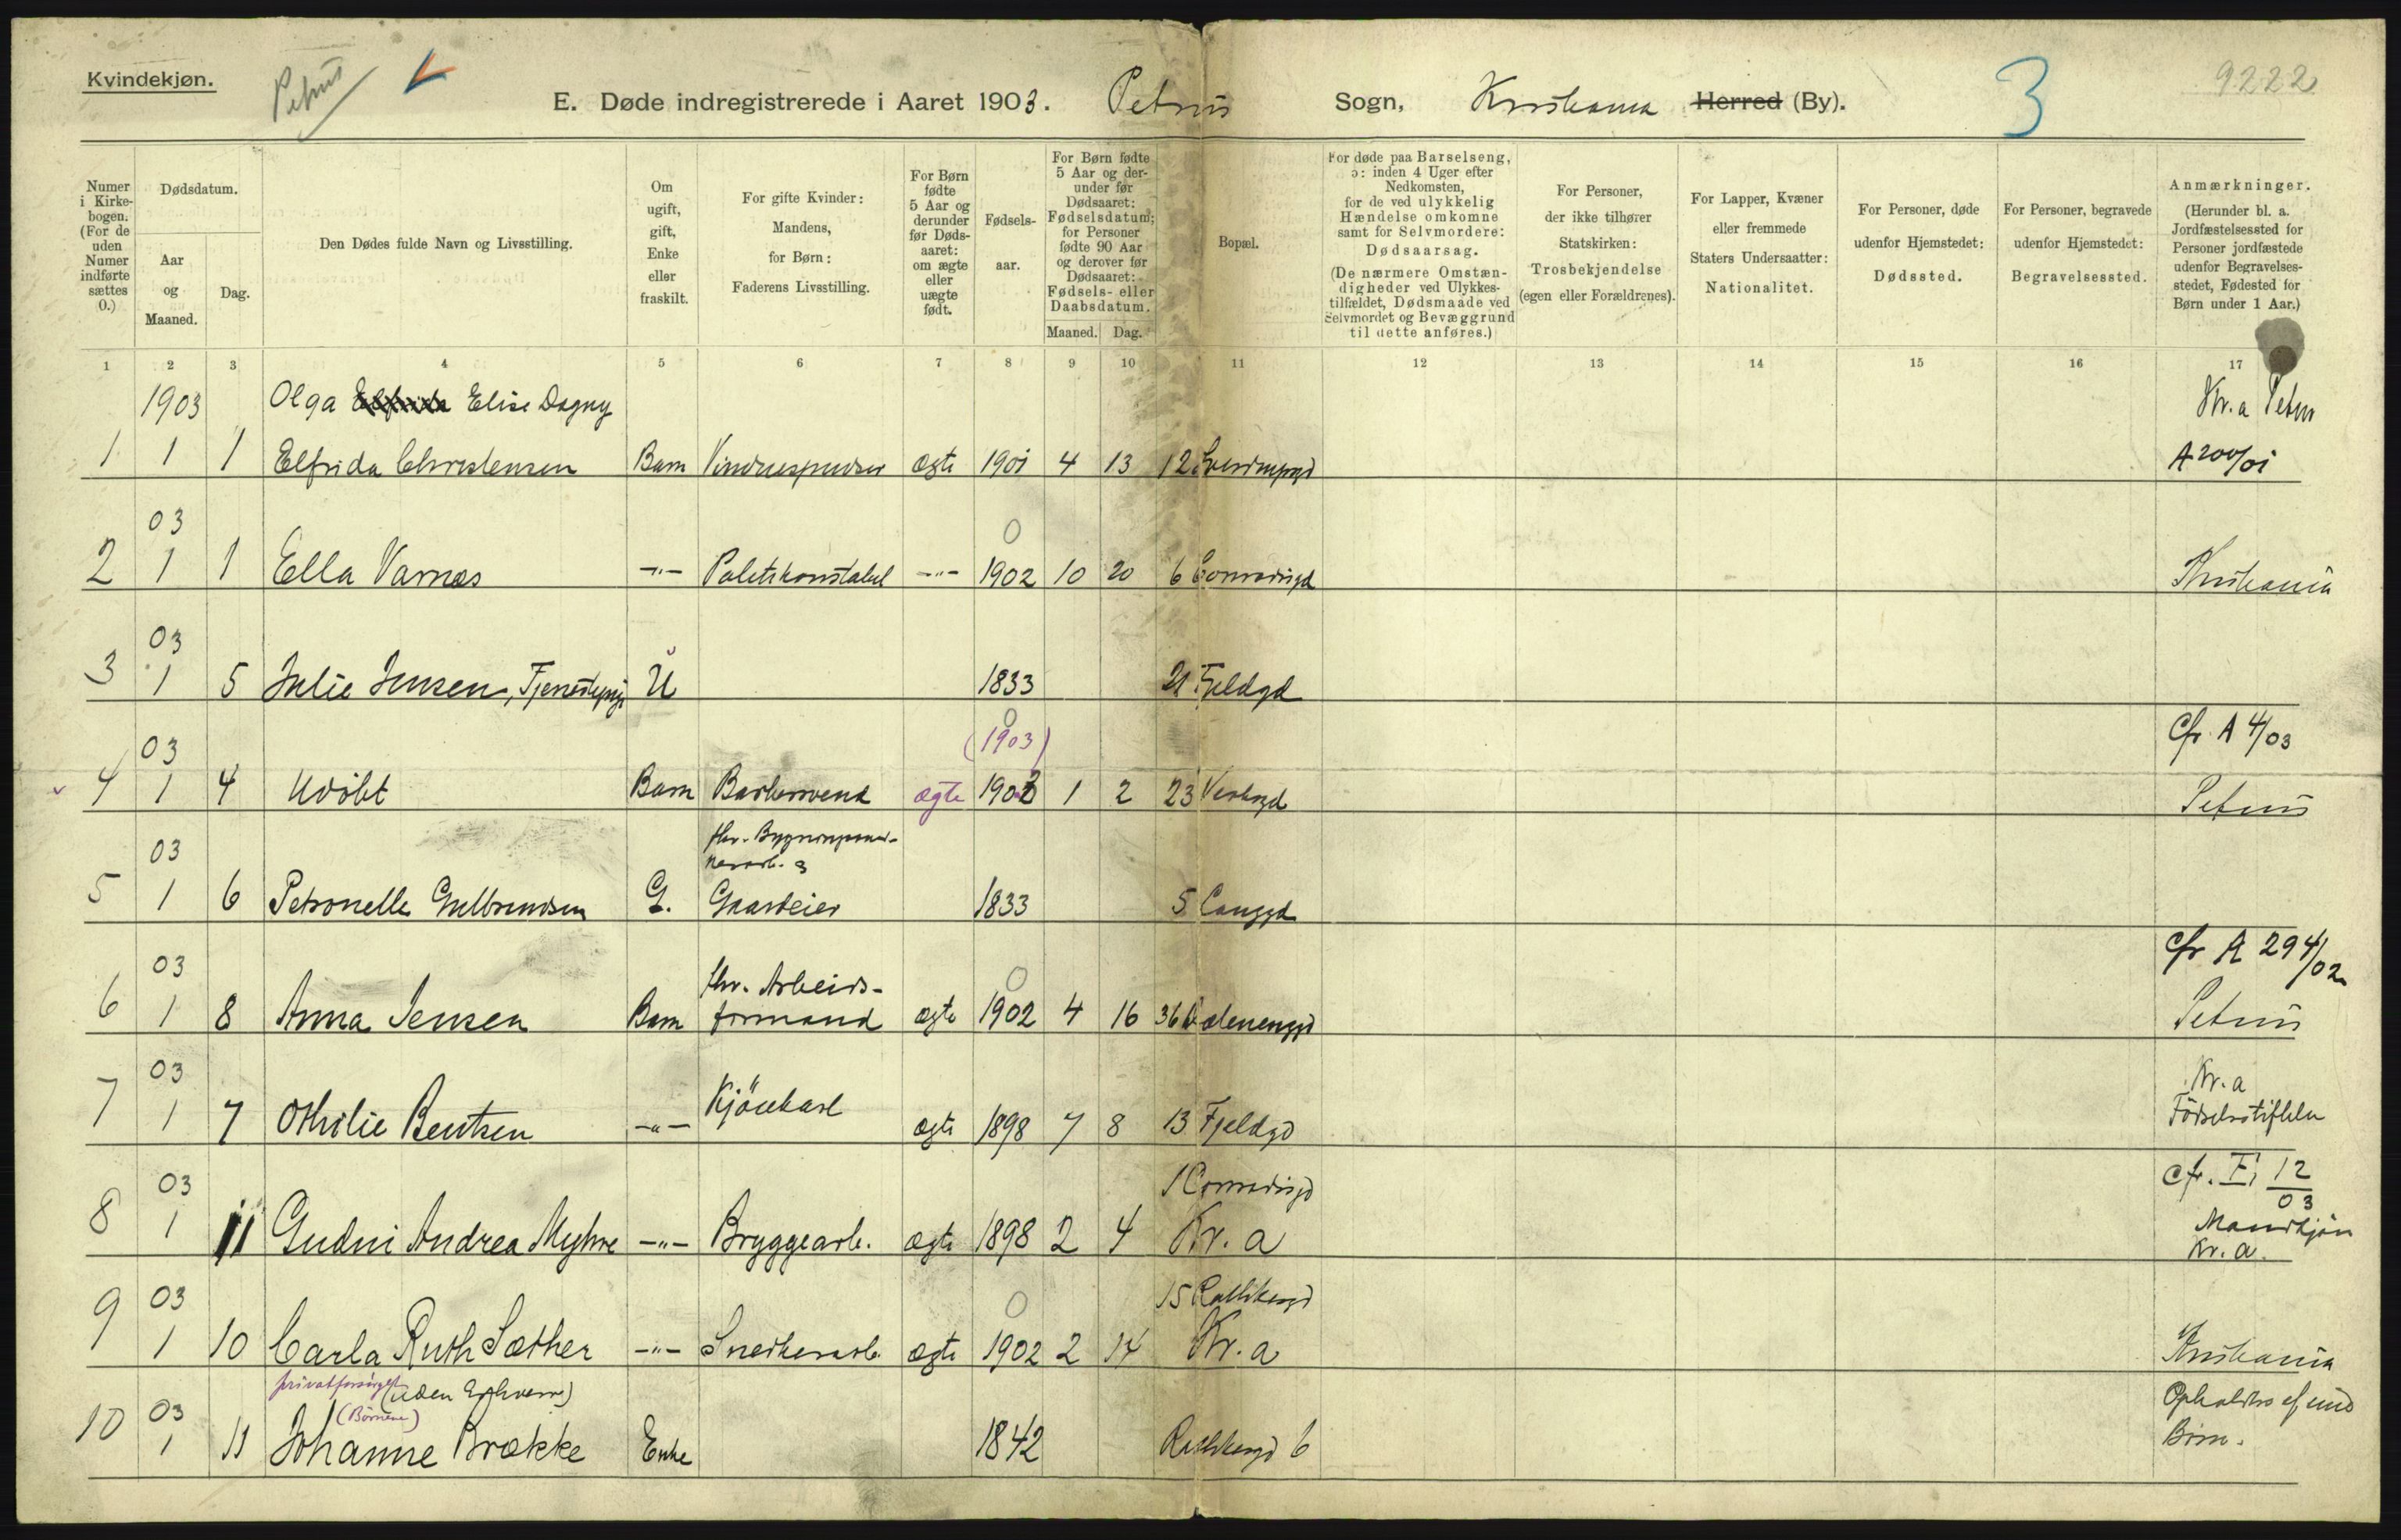 Kvindekjøn.
Petrus
E. Døde indregistrerede i Aaret 1903. Petrus Sogn, Kristiania Herred (By).
3
9222
Numer i Kirke-bogen. (For de uden Numer indførte sættes 0.)
Dødsdatum.
Aar og Maaned.
Dag.
Den Dødes fulde Navn og Livsstilling.
Om ugift, gift, Enke eller fraskilt.
For gifte Kvinder: Mandens, for Børn: Faderens Livsstilling.
For Børn fødte 5 Aar og derunder før Døds-aaret: om ægte eller uægte født.
Fødsels-aar.
For Børn fødte 5 Aar og der-under før Dødsaaret: Fødselsdatum; for Personer fødte 90 Aar og derover før Dødsaaret: Fødsels- eller Daabsdatum.
Maaned. Dag.
Bopæl.
For døde paa Barselseng, ɔ: inden 4 Uger efter Nedkomsten, for de ved ulykkelig Hændelse omkomne samt for Selvmordere: Dødsaarsag. (De nærmere Omstæn-digheder ved Ulykkes-tilfældet, Dødsmaade ved Selvmordet og Bevæggrund til dette anføres.)
For Personer, der ikke tilhører Statskirken: Trosbekjendelse (egen eller Forældrenes).
For Lapper, Kvæner eller fremmede Staters Undersaatter: Nationalitet.
For Personer, døde udenfor Hjemstedet: Dødssted.
For Personer, begravede udenfor Hjemstedet: Begravelsessted.
Anmærkninger. (Herunder bl. a. Jordfæstelsessted for Personer jordfæstede udenfor Begravelses-stedet, Fødested for Børn under 1 Aar.)
1 2 3 4 5 6 7 8 9 10 11 12 13 14 15 16 17
1903 Olga Elfrida Elise Dagny Kr.a Petrus
1 1 1 Elfrida Christensen Barn Vinduespudser ægte 1901 4 13 12 A 200/01
03 0
2 1 1 Ella Varnæs -"- Politikonstabel -"- 1902 10 20 6 Conradisgd Kristiania
03
3 1 5 Julie Jensen, U 1833 21 Fjeldgd
03 0 (1903) Cfr. A 4/03
4 1 4 Udøbt Barn Barbersvend ægte 1903 1 2 23 Petrus
03 fhv.
5 1 6 Petronelle Gulbrandsen G. Gaardeier 1833 5 Langgd
03 fhv. Arbeids- 0 Cfr A 294/02
6 1 8 Anna Jensen Barn formand ægte 1902 4 16 36 Dælenenggd Petrus
03 Kjørekarl Kr.a
7 1 7 Othilie Bentsen -"- ægte 1898 7 8 13 Fjeldgd Fødselsstiftelse
03 1 Conradisgd Cfr. E, 12/03
8 1 11 Gudni Andrea Myhre -"- Bryggearb. ægte 1898 2 4 Kr.a Mandkjøn Kr.a.
03 0 15 Rathkesgd
9 1 10 Carla Ruth Sæther -"- Snedkerarb. ægte 1902 2 14 Kr.a Kristiania
privatforsørget (uden Erhverv) (Børnene)
10 03 1 11 Johanne Brække Enke 1842 Rathkesgd 6 Opholdtes af sine Børn.